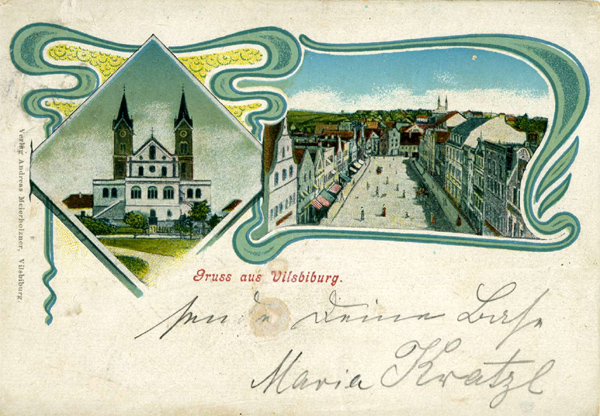 Verlag Andreas Meierholzner, Vilsbiburg.
Gruss aus Vilsbiburg.
sendet Deine Base
Maria Kratzl